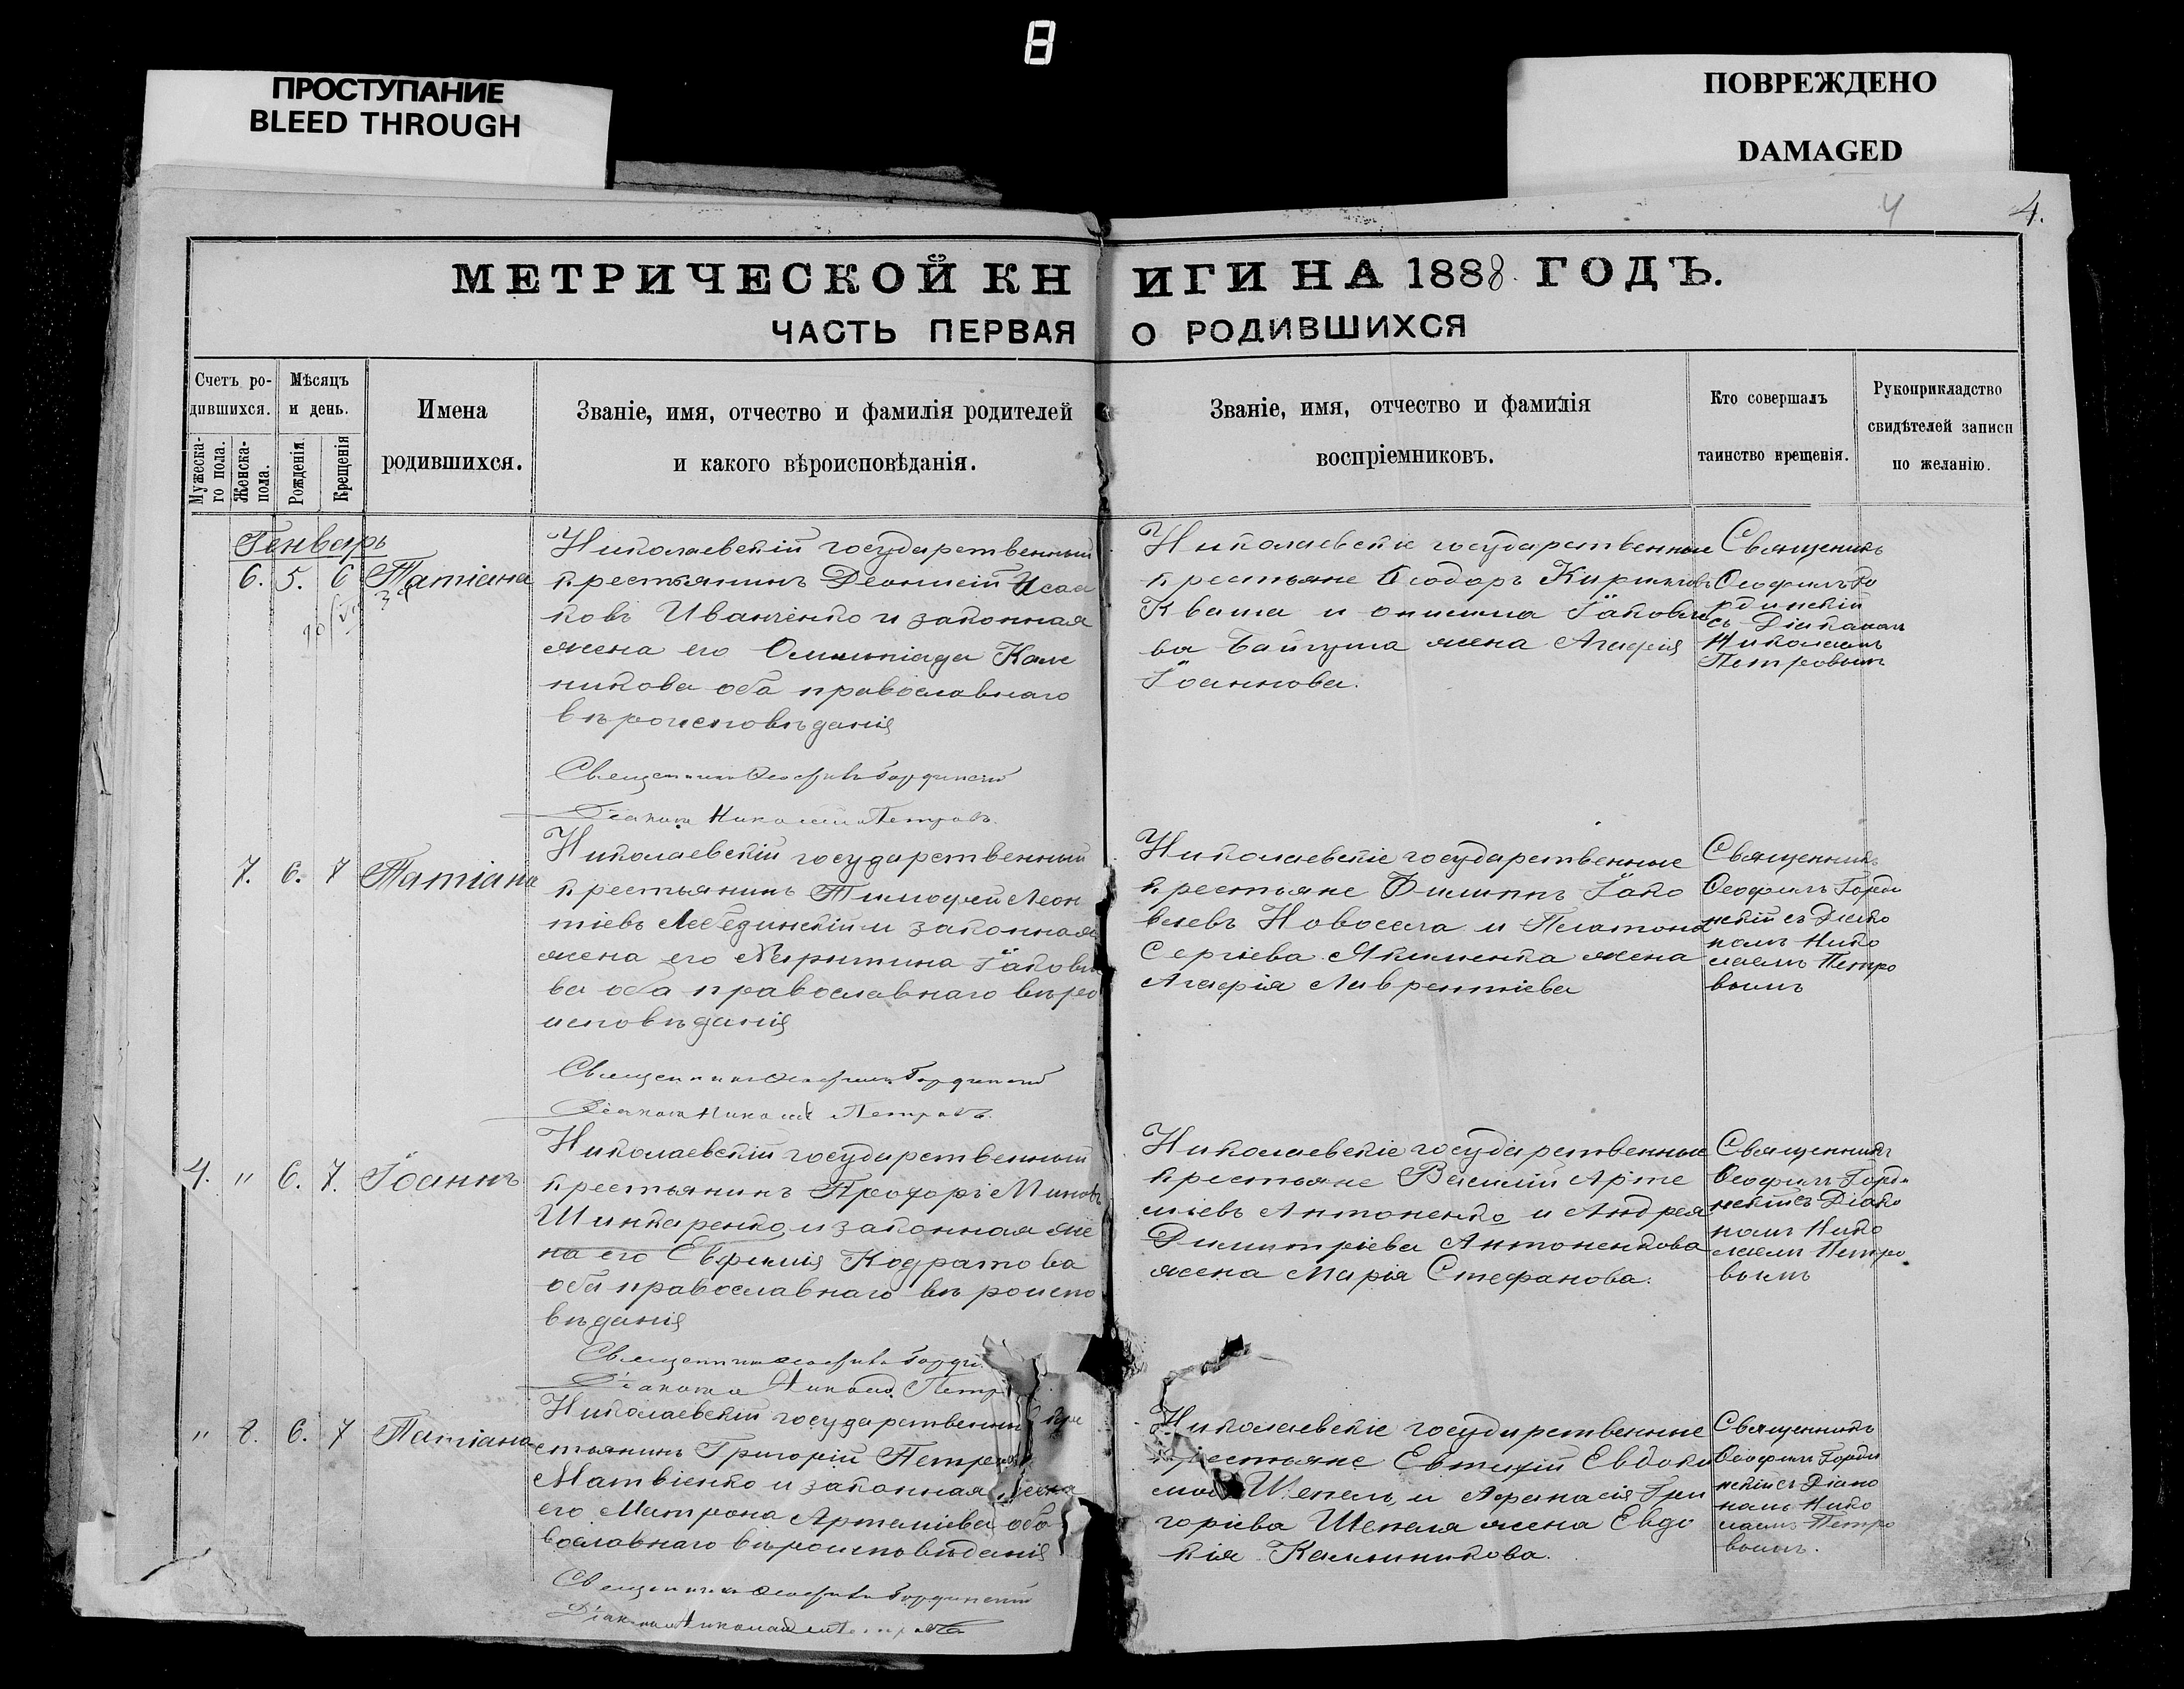 8
ПРОСТУПАНИЕ
BLEED THROUGH
ПОВРЕЖДЕНО
DAMAGED
4 4.
МЕТРИЧЕСКОЙ КНИГИ НА 1888 ГОДЪ.
ЧАСТЬ ПЕРВАЯ О РОДИВШИХСЯ
Счетъ ро-
дившихся.
Мужеска-
го пола.
Женска-
пола.
Мѣсяцъ
и день.
Рожденія
Крещенія
Имена
родившихся.
Званіе, имя, отчество и фамилія родителей
и какого вѣроисповѣданія.
Званіе, имя, отчество и фамилія
воспріемниковъ.
Кто совершалъ
таинство крещенія.
Рукоприкладство
свидѣтелей записи
по желанію.
Генварь
6. 5. 6 Татіана
Николаевскій государственный
крестьянинъ Деонисій Исаа
ковъ Иванченко и законная
жена его Олимпіада Кали
никова оба православнаго
вѣроисповѣданія
Священникъ Ѳеофилъ Гординскій
Діаконъ Николай Петровъ.
Николаевскіе государственные
крестьяне Ѳеодоръ Кириловъ
Кваша и онисима Іаковле
ва Байгуша жена Агафія
Іоаннова.
Священникъ
Ѳеофилъ Го
рдинскій
съ Діакономъ
Николаемъ
Петровымъ
7. 6. 7 Татіана
Николаевскій государственный
крестьянинъ Тимофей Леон
тіевъ Лебединскій и законная
жена его Іаковле
ва оба православнаго вѣро
исповѣданія
Священникъ Ѳеофилъ Гординскій
Діаконъ Николай Петровъ.
Николаевскіе государственные
крестьяне Филиппъ Іако
влевъ Новосела и Платона
Сергіева Якименка жена
Агафія Лаврентіева
Священникъ
Ѳеофилъ Горди
нскій съ Діако
номъ Нико
лаемъ Петро
вымъ
4. " 6. 7. Іоаннъ
Николаевскій государственный
крестьянинъ Прохоръ Миновъ
Шинкаренко и законная же
на его Евфимія Кодратова
оба православнаго вѣроиспо
вѣданія
Священникъ Ѳеофилъ Горди
Діаконъ Николай Петр
Николаевскіе государственные
крестьяне Василій Арте
міевъ Антоненко и Андрея
Димитріева Антоненкова
жена Марія Стефанова.
Священникъ
Ѳеофилъ Горди
нскій съ Діако
номъ Нико
лаемъ Петро
вымъ
" 8. 6. 7 Татіана
Николаевскій государственный кре
стьянинъ Григорій Петровъ
Матвіенко и законная жена
его Матрона Артеміева оба
вославнаго вѣроисповѣданія
Священникъ Ѳеофилъ Гординскій
Діаконъ Николай Петровъ
Николаевскіе государственные
крестьяне Евтихій Евдоки
мовъ Шепель и Афанасія Гри
горіева Шепеля жена Евдо
кія Калинникова.
Священникъ
Ѳеофилъ Горди
нскій съ Діако
номъ Нико
лаемъ Петро
вымъ.